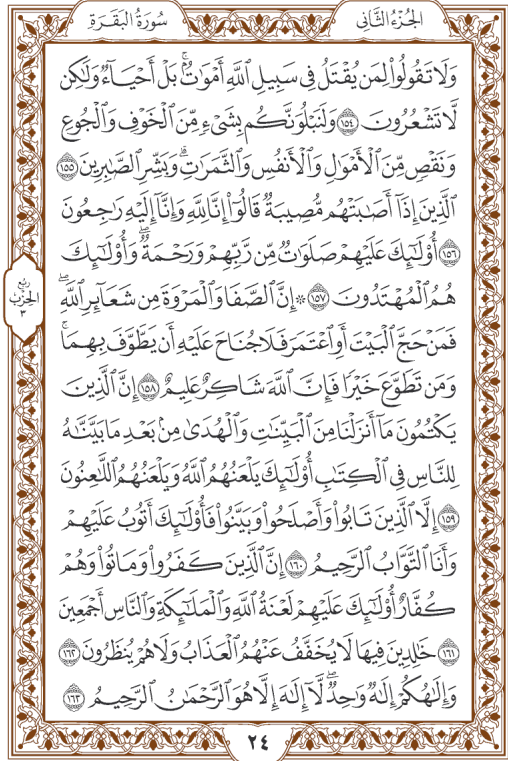 الجُزْءُ الثَّانِي
سُورَةُ البَقَرَةِ
وَلَا تَقُولُواْ لِمَن يُقْتَلُ فِي سَبِيلِ ٱللَّهِ أَمْوَٰتُۢۚ بَلْ أَحْيَآءٞ وَلَٰكِن
لَّا تَشْعُرُونَ ١٥٤ وَلَنَبْلُوَنَّكُم بِشَيْءٖ مِّنَ ٱلْخَوْفِ وَٱلْجُوعِ
وَنَقْصٖ مِّنَ ٱلْأَمْوَٰلِ وَٱلْأَنفُسِ وَٱلثَّمَرَٰتِۗ وَبَشِّرِ ٱلصَّٰبِرِينَ ١٥٥
ٱلَّذِينَ إِذَآ أَصَٰبَتْهُم مُّصِيبَةٞ قَالُوٓاْ إِنَّا لِلَّهِ وَإِنَّآ إِلَيْهِ رَٰجِعُونَ
١٥٦ أُوْلَٰٓئِكَ عَلَيْهِمْ صَلَوَٰتٞ مِّن رَّبِّهِمْ وَرَحْمَةٞۖ وَأُوْلَٰٓئِكَ
هُمُ ٱلْمُهْتَدُونَ ١٥٧ ۞ إِنَّ ٱلصَّفَا وَٱلْمَرْوَةَ مِن شَعَآئِرِ ٱللَّهِۖ
فَمَنْ حَجَّ ٱلْبَيْتَ أَوِ ٱعْتَمَرَ فَلَا جُنَاحَ عَلَيْهِ أَن يَطَّوَّفَ بِهِمَاۚ
وَمَن تَطَوَّعَ خَيْرٗا فَإِنَّ ٱللَّهَ شَاكِرٌ عَلِيمٌ ١٥٨ إِنَّ ٱلَّذِينَ
يَكْتُمُونَ مَآ أَنزَلْنَا مِنَ ٱلْبَيِّنَٰتِ وَٱلْهُدَىٰ مِنۢ بَعْدِ مَا بَيَّنَّٰهُ
لِلنَّاسِ فِي ٱلْكِتَٰبِ أُوْلَٰٓئِكَ يَلْعَنُهُمُ ٱللَّهُ وَيَلْعَنُهُمُ ٱللَّٰعِنُونَ
١٥٩ إِلَّا ٱلَّذِينَ تَابُواْ وَأَصْلَحُواْ وَبَيَّنُواْ فَأُوْلَٰٓئِكَ أَتُوبُ عَلَيْهِمْ
وَأَنَا ٱلتَّوَّابُ ٱلرَّحِيمُ ١٦٠ إِنَّ ٱلَّذِينَ كَفَرُواْ وَمَاتُواْ وَهُمْ
كُفَّارٌ أُوْلَٰٓئِكَ عَلَيْهِمْ لَعْنَةُ ٱللَّهِ وَٱلْمَلَٰٓئِكَةِ وَٱلنَّاسِ أَجْمَعِينَ
١٦١ خَٰلِدِينَ فِيهَا لَا يُخَفَّفُ عَنْهُمُ ٱلْعَذَابُ وَلَا هُمْ يُنظَرُونَ ١٦٢
وَإِلَٰهُكُمْ إِلَٰهٞ وَٰحِدٞۖ لَّآ إِلَٰهَ إِلَّا هُوَ ٱلرَّحْمَٰنُ ٱلرَّحِيمُ ١٦٣
ربع
الحزب
٣
٢٤